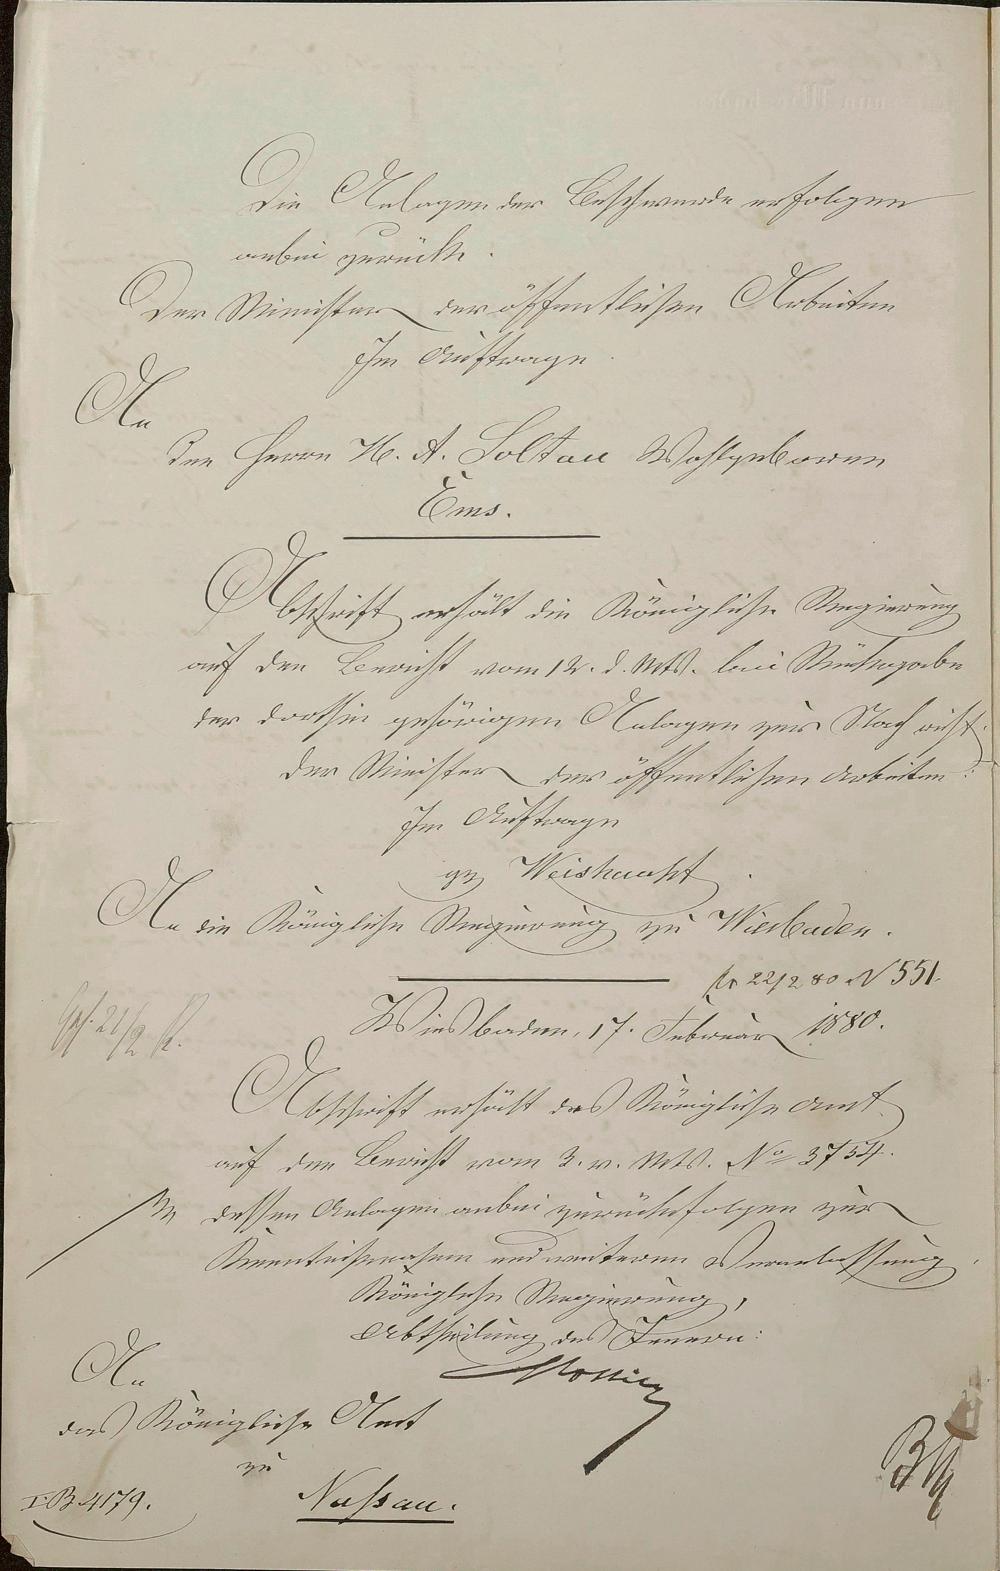 Die Anlagen der Beschwerde erfolgen
anbei zurück.
Der Minister der öffentlichen Arbeiten
Im Auftrage.
An
den Herrn H. A. Soltau Wohlgeboren
Ems.
Abschrift erhält die Königliche Regierung
auf den Bericht vom 12. d. Mts. bei Rückgabe
der dorthin gehörigen Anlagen zur Nachricht.
Der Minister der öffentlichen Arbeiten:
Im Auftrage
gez Weishaupt.
An die Königliche Regierung zu Wiesbaden.
pr 22/2 80 N 551.
Wiesbaden, 17. Februar 1880.
21/2
Abschrift erhält das Königliche Amt
auf den Bericht vom 3. v. Mts. No 3754.
dessen Anlagen anbei zurückfolgen zur
Kenntnißnahme und weiteren Veranlassung.
Königliche Regierung,
Abtheilung des Innern:
An
das Königliche Amt
zu
I.B.4179.
Nassau.